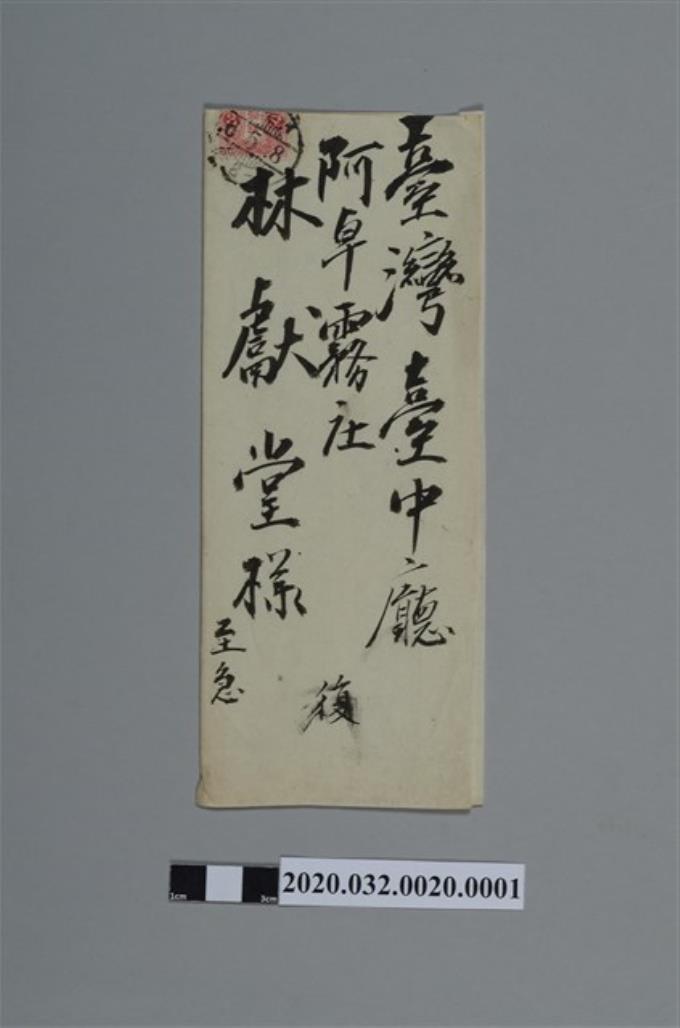 臺灣臺中廳
阿卓霧庄
林獻堂樣
至急
復
6.5.8
1cm
3cm
2020.032.0020.0001